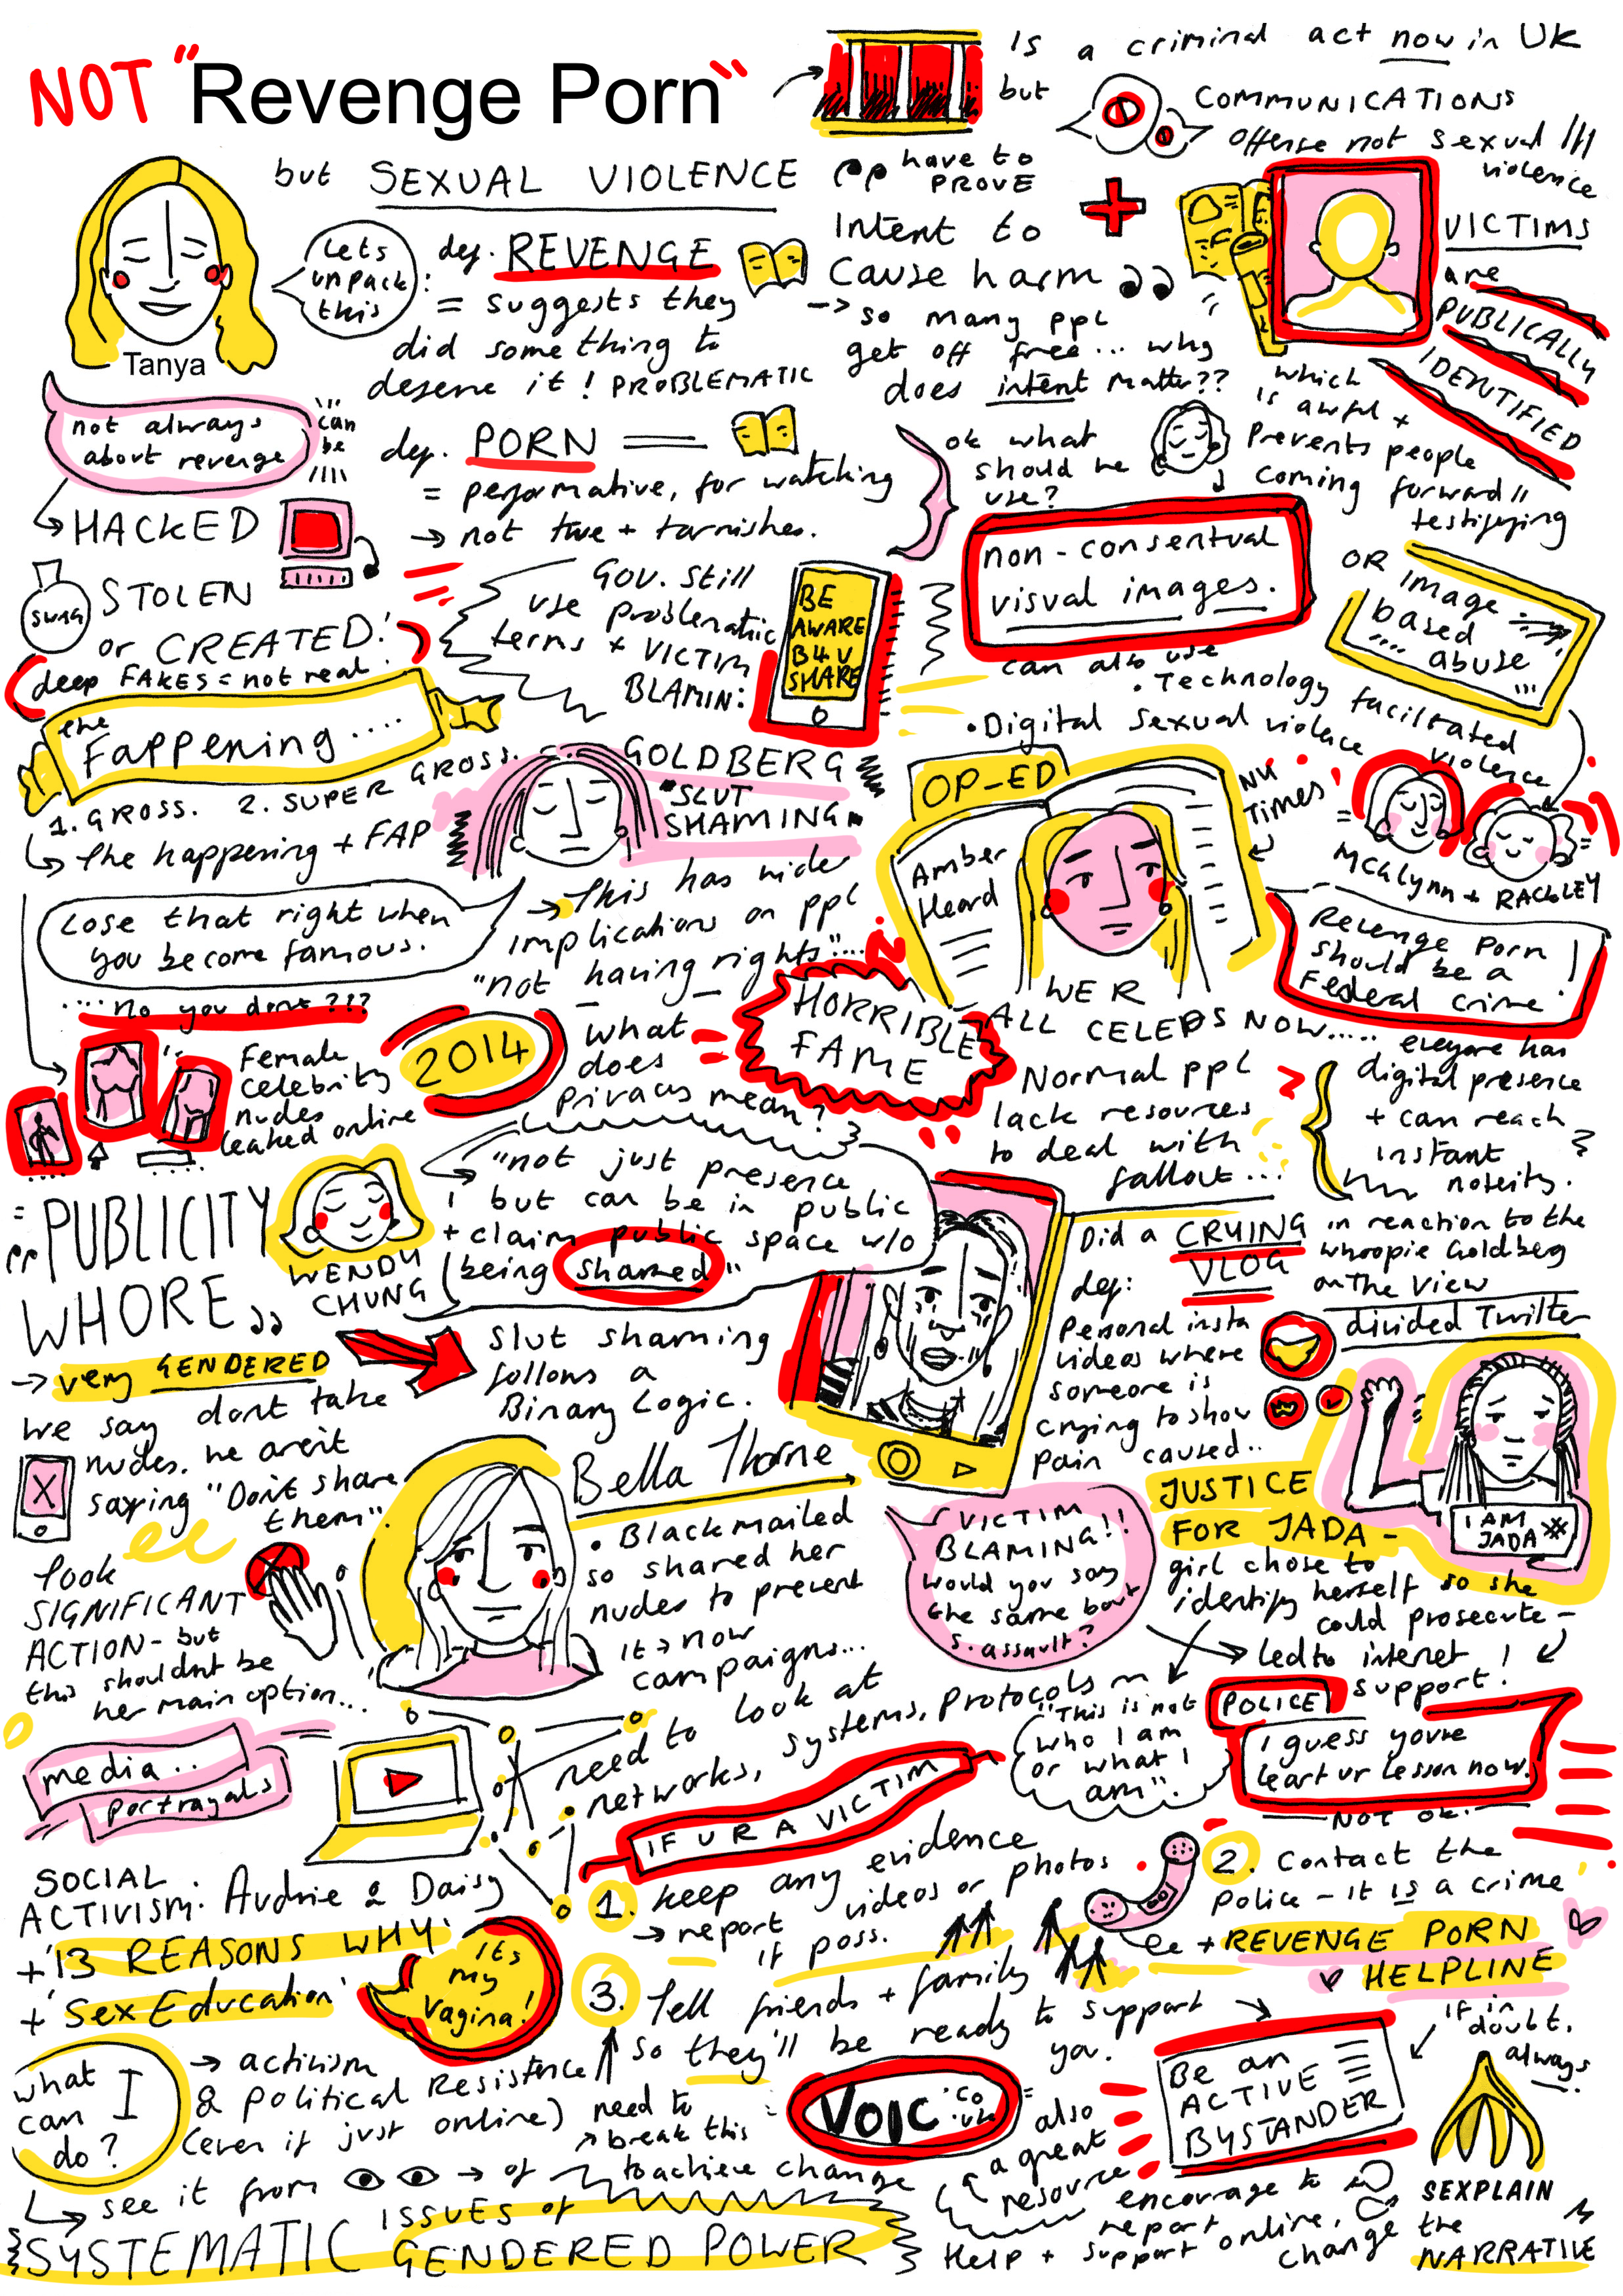 NOT "Revenge Porn"
but SEXUAL VIOLENCE
is a criminal act now in UK
but
COMMUNICATIONS
offense not sexual
violence
pp have to
PROVE
Intent to
Cause harm
→ so many ppl
get off free... why
does intent matter??
+
VICTIMS
are
PUBLICALLY
IDENTIFIED
which
is awful +
Prevents people
coming forward
testifying
Tanya
Lets
unpack
this
def. REVENGE
= suggests they
did something to
deserve it! PROBLEMATIC
not always
about revenge
can
be
→ HACKED
SWAG
STOLEN
or CREATED!
deep FAKES = not real
def. PORN
= performative, for watching
→ not true + tarnishes.
ok what
should we
use?
non-consentual
visual images.
OR image
based
abuse
can also use
• Technology facilitated
violence
• Digital sexual violence
Gov. still
use problematic
terms + VICTIM
BLAMIN:
BE
AWARE
B4 U
SHARE
the
Fappening....
1. GROSS. 2. SUPER GROSS.
→ the happening + FAP
GOLDBERG
"SLUT
SHAMING"
Lose that right when
you become famous.
.... no you dont???
→ This has wider
implications on ppl
"not having rights"...
OP-ED
Amber
Heard
NY
Times
MCGLYNN + RACKLEY
Revenge Porn
should be a
Federal crime!
HORRIBLE
FAME
WE R
ALL CELEBS NOW.....
everyone has
digital presence
+ can reach
instant
noteity.
Normal ppl
lack resources
to deal with
fallout...
Female
celebrity
nudes
leaked online
2014
what
does
Privacy mean?
WENDY
CHUNG
"not just presence
but can be in public
+ claim public space w/o
being shamed"
= PUBLICITY
WHORE
→ very GENDERED
we say dont take
nudes. we aren't
saying "Don't share
them".
Slut shaming
follows a
Binary Logic.
Did a CRYING
VLOG
in reaction to the
whoopie Goldbeg
on The View
def:
Personal insta
videos where
someone is
crying to show
pain caused..
divided Twitter
JUSTICE
FOR JADA -
I AM
JADA #
girl chose to
identify herself so she
could prosecute -
→ led to internet
support!
Bella Thorne
• Blackmailed
so shared her
nudes to prevent
it → now
campaigns...
Took
SIGNIFICANT
ACTION - but
this shouldnt be
her main option..
VICTIM
BLAMING!!
would you say
the same bout
s. assault?
"This is not
who I am
or what I
am".
POLICE
I guess youve
leart ur lesson now.
NOT OK.
media..
Portrayals
need to look at
networks, systems, protocols
SOCIAL
ACTIVISM: Audrie & Daisy
+ '13 REASONS WHY'
+ 'Sex Education'
its
my
Vagina!
IF U R A VICTIM
1. Keep any evidence
→ report videos or photos
if poss.
2. Contact the
police - it IS a crime
+ REVENGE PORN
HELPLINE
3. Tell friends + family
so they'll be ready to support
you.
what
can I
do?
→ activism
& Political Resistence
(even if just online)
need to
break this
to achieve change
↳ see it from → of
ISSUES of
SYSTEMATIC GENDERED POWER
VOIC .co
.uk
also
a great
resource
Be an
ACTIVE
BYSTANDER
encourage to
report
Help + support online,
change the
if in
doubt,
always
SEXPLAIN
NARRATIVE